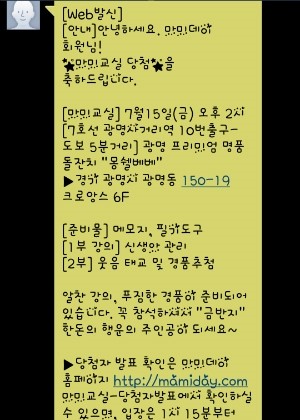 [Web발신]
[안내]안녕하세요. 맘미데이
회원님!
★맘미교실 당첨★을
축하드립니다.
[맘미교실] 7월15일(금) 오후 2시
[7호선 광명사거리역 10번출구-
도보 5분거리] 광명 프리미엄 명품
돌잔치 "몽쉘베베"
▶경기 광명시 광명동 150-19
크로앙스 6F
[준비물] 메모지, 필기도구
[1부 강의] 신생아 관리
[2부] 웃음 태교 및 경품추첨
알찬 강의, 푸짐한 경품이 준비되어
있습니다. 꼭 참석하시어 "금반지"
한돈의 행운의 주인공이 되세요~
▶당첨자 발표 확인은 맘미데이
홈페이지 http://mamiday.com
맘미교실-당첨자발표에서 확인하실
수 있으며, 입장은 1시 15분부터